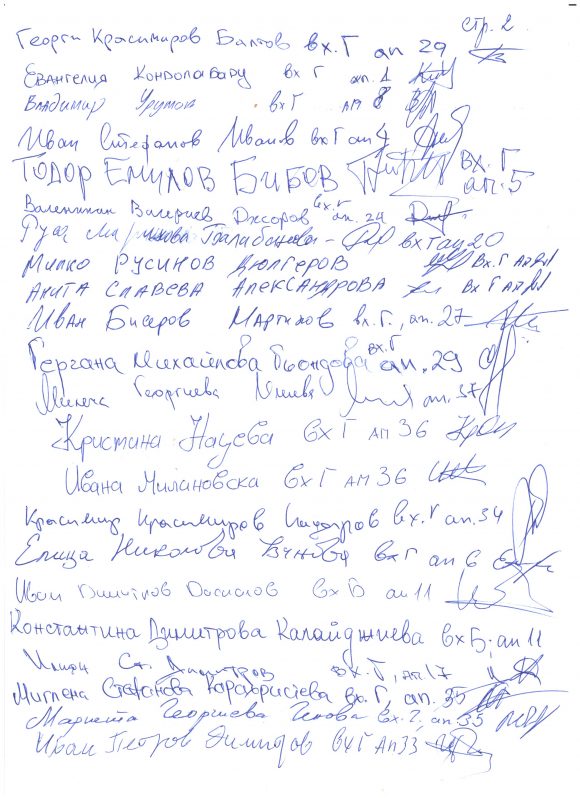 стр. 2
Георги Красимиров Балтов вх. Г ап 29
Евангелия вх Г ап. 1
Владимир вх Г ап 8
Иван Стефанов Иванов вх Г ап 4
ТОДОР ЕМИЛОВ БИБОВ вх. Г
ап. 5
Валентин Валериев вх. Г ап. 24
Балабанова - вх Г ап 20
МИЛКО РУСИНОВ ДЮЛГЕРОВ вх. Г
АНИТА СЛАВЕВА АЛЕКСАНДРОВА вх Г
Иван Бисеров Мартинов вх. Г., ап. 27
Гергана Михайлова вх. Г ап. 29
Милена Георгиева ап. 37
Кристина Нацева вх Г ап 36
Ивана Милановска вх Г ап 36
Красимир Красимиров вх. Г ап. 34
Елица Николова вх Г ап 6
Иван Димитров вх Б ап 11
Константина Димитрова Калайджиева вх Б; ап 11
Ст. Димитров вх. Г, ап. 17
Миглена Стефанова вх. Г, ап. 35
Мариета Георгиева вх. Г, ап. 35
Иван Петров вх Г Ап 33